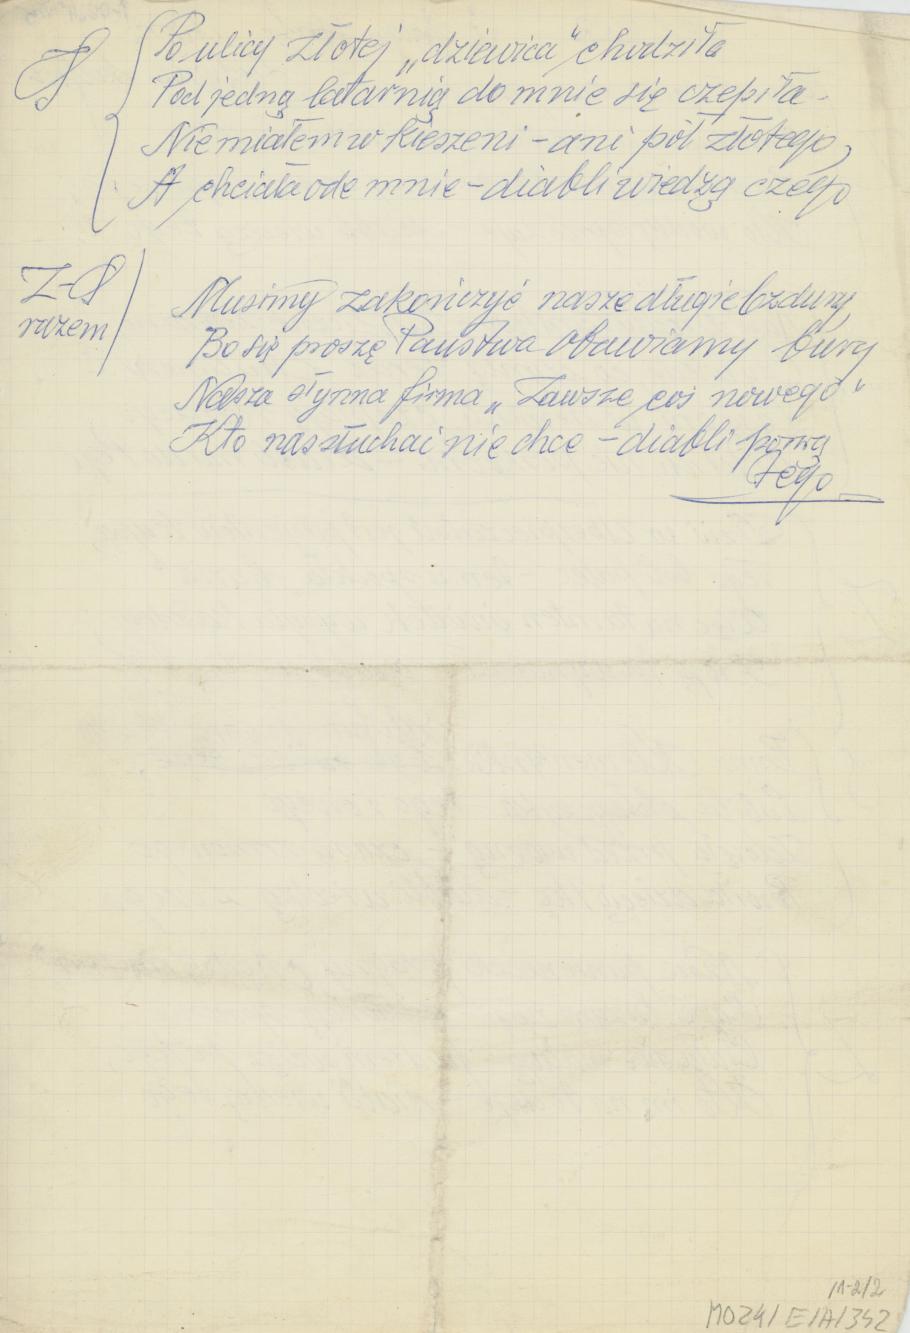 S
Po ulicy złotej „dziewica" chodziła
Pod jedną latarnią do mnie się czepiła -
Nie miałem w kieszeni - ani pół złotego,
A chciała ode mnie - diabli wiedzą czego
Z-S
razem
Musimy zakończyć nasze długie bzdury,
Bo się proszę Państwa obawiamy bury
Nasza słynna firma „Zawsze coś nowego"
Kto nas słuchai nie chce - diabli porwą
tego
/1-2/2
MOZK/E/A/342